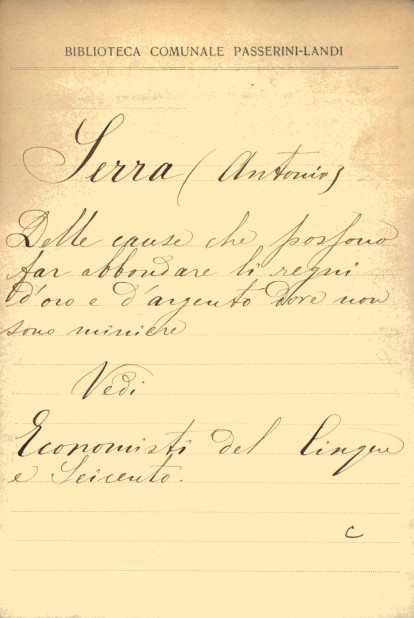 BIBLIOTECA COMUNALE PASSERINI-LANDI
Serra (Antonio)
Delle cause che possono
far abbondare li regni
d'oro e d'argento dove non
sono miniere
Vedi
Economisti del Cinque
e Seicento.
C